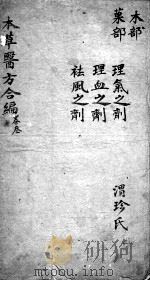 木部
菓部
理氣之劑
理血之劑
祛風之劑
渭珍氏
本草醫方合編